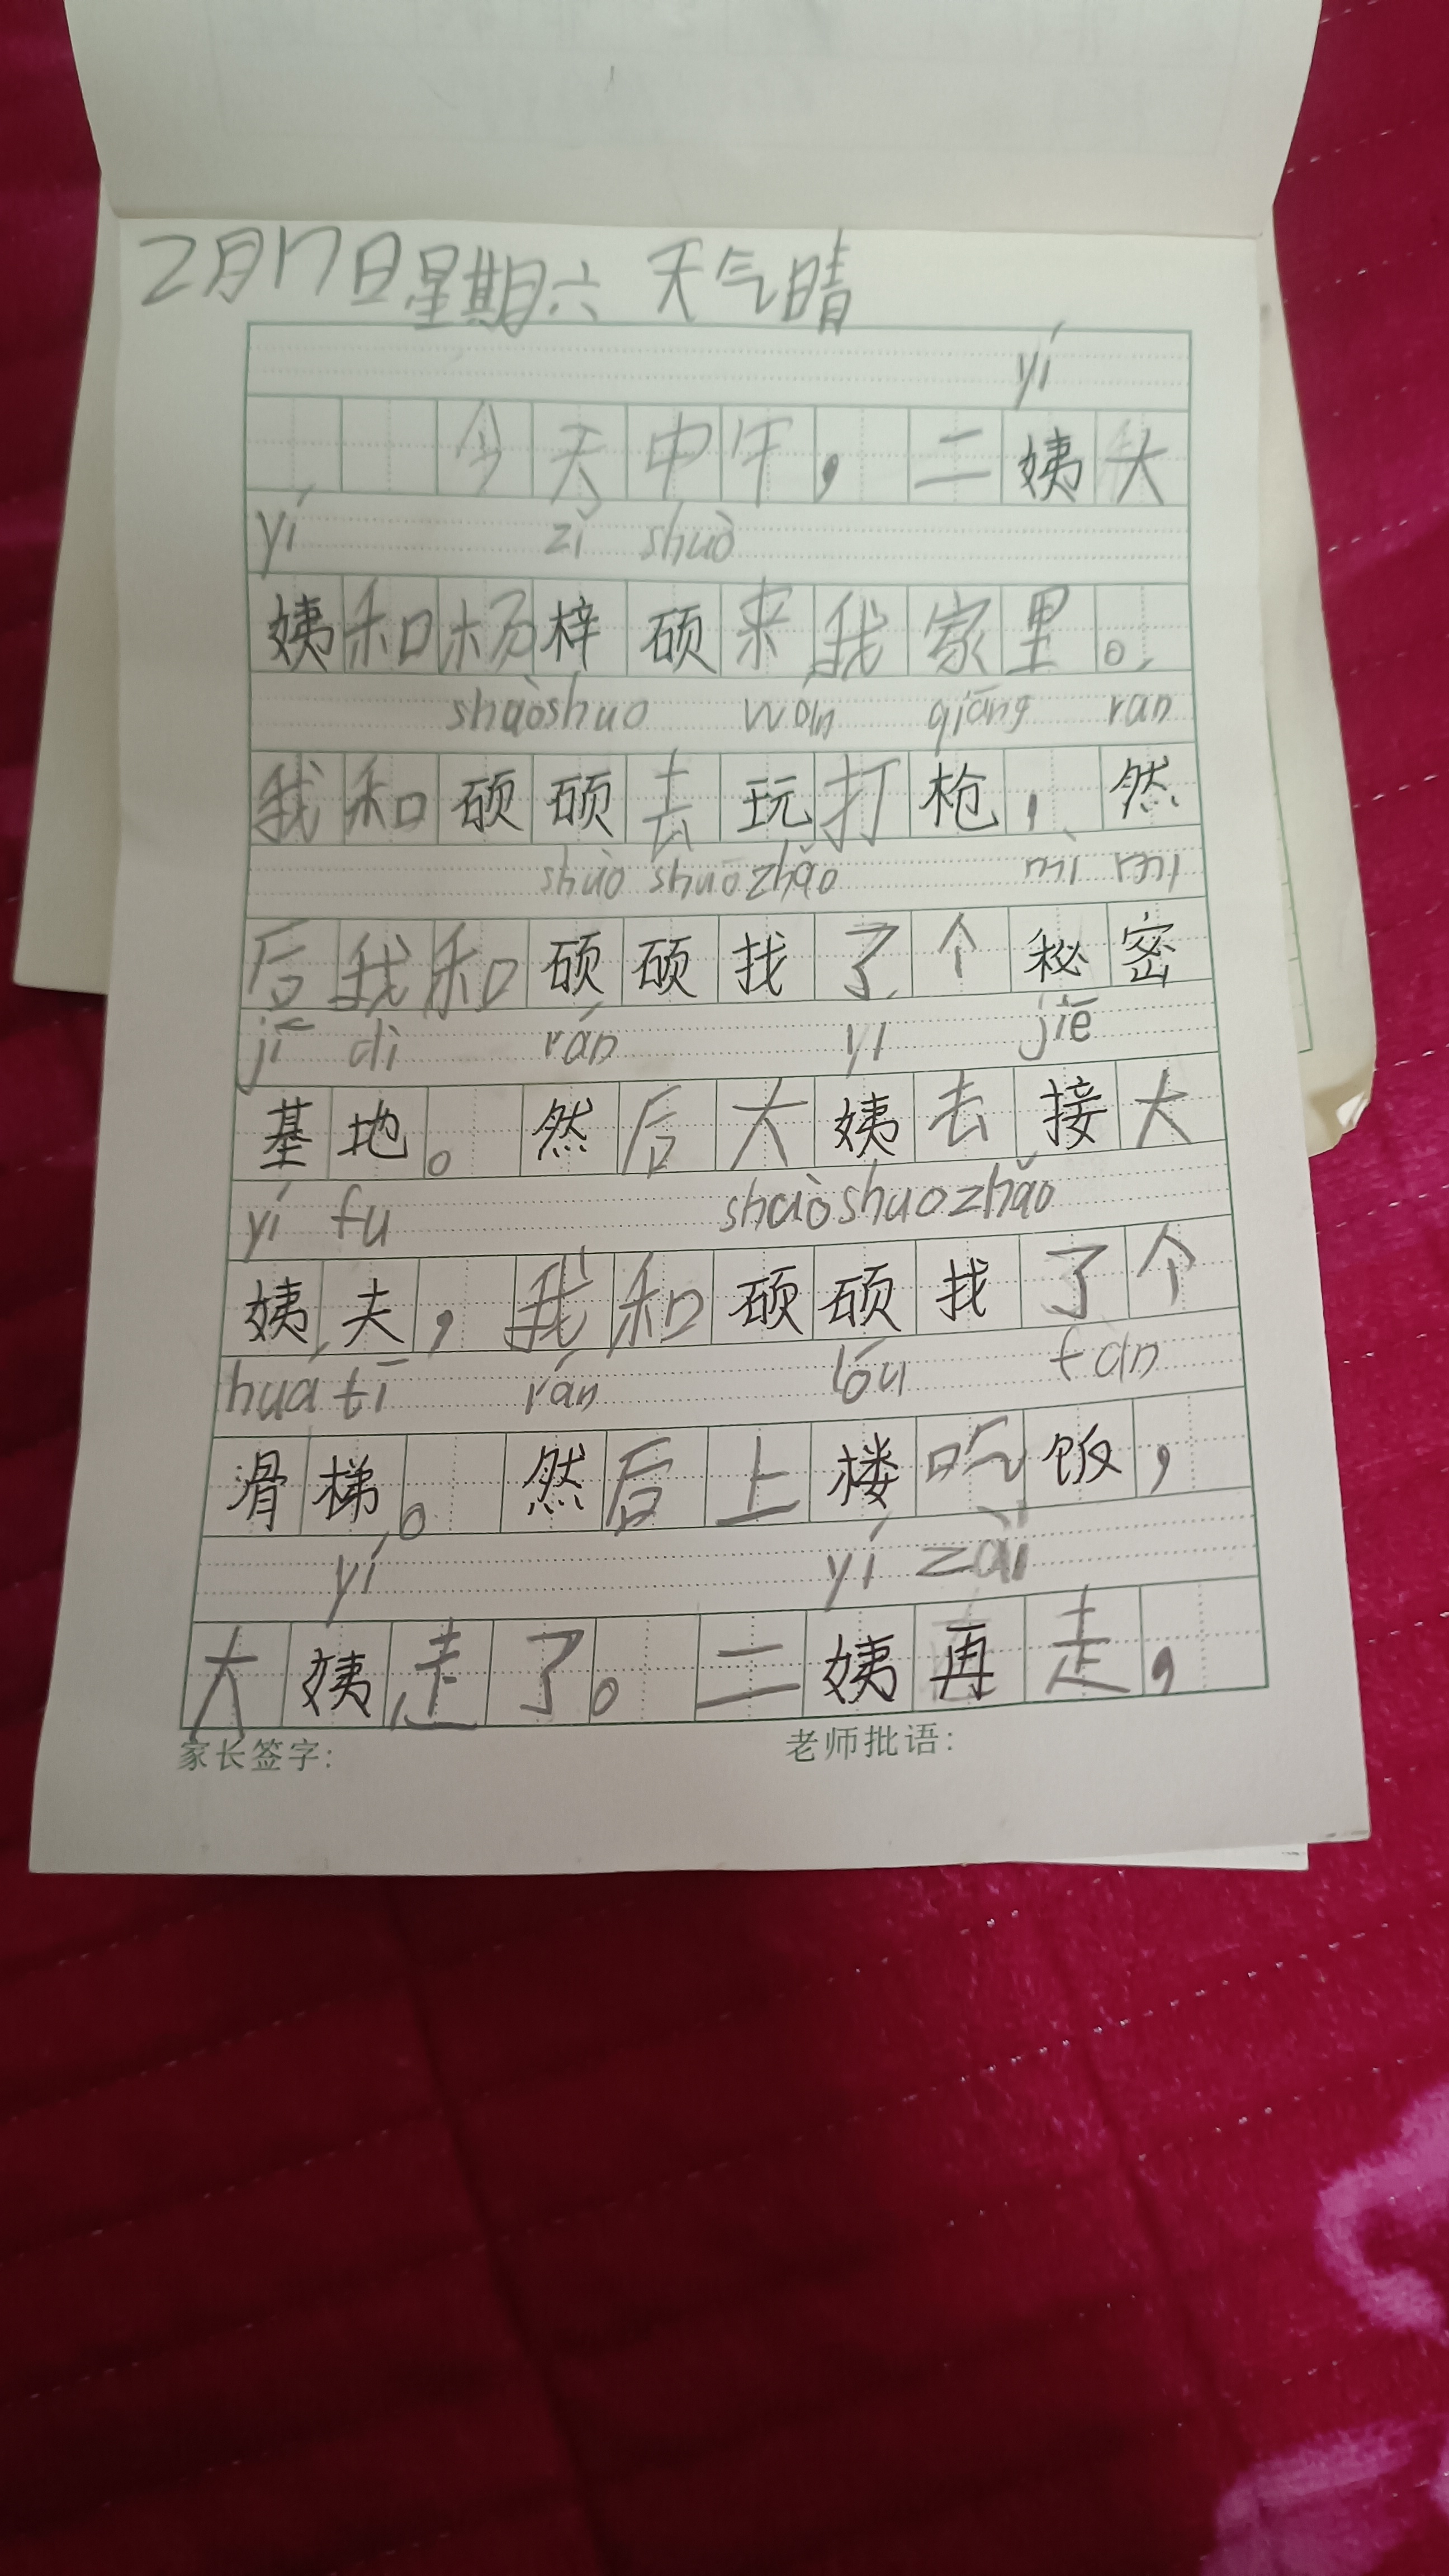 2月17日星期六 天气晴
yí
今天中午，二姨大
yí zǐ shuò
姨和杨梓硕来我家里。
shuòshuo wán qiāng ran
我和硕硕去玩打枪，然
shuò shuo zhǎo mì mì
后我和硕硕找了个秘密
jī dì rán yí jiē
基地。然后大姨去接大
yí fu shuòshuo zhǎo
姨夫，我和硕硕找了个
huá tī rán lóu fàn
滑梯。然后上楼吃饭，
yí yí zài
大姨走了。二姨再走，
家长签字: 老师批语: